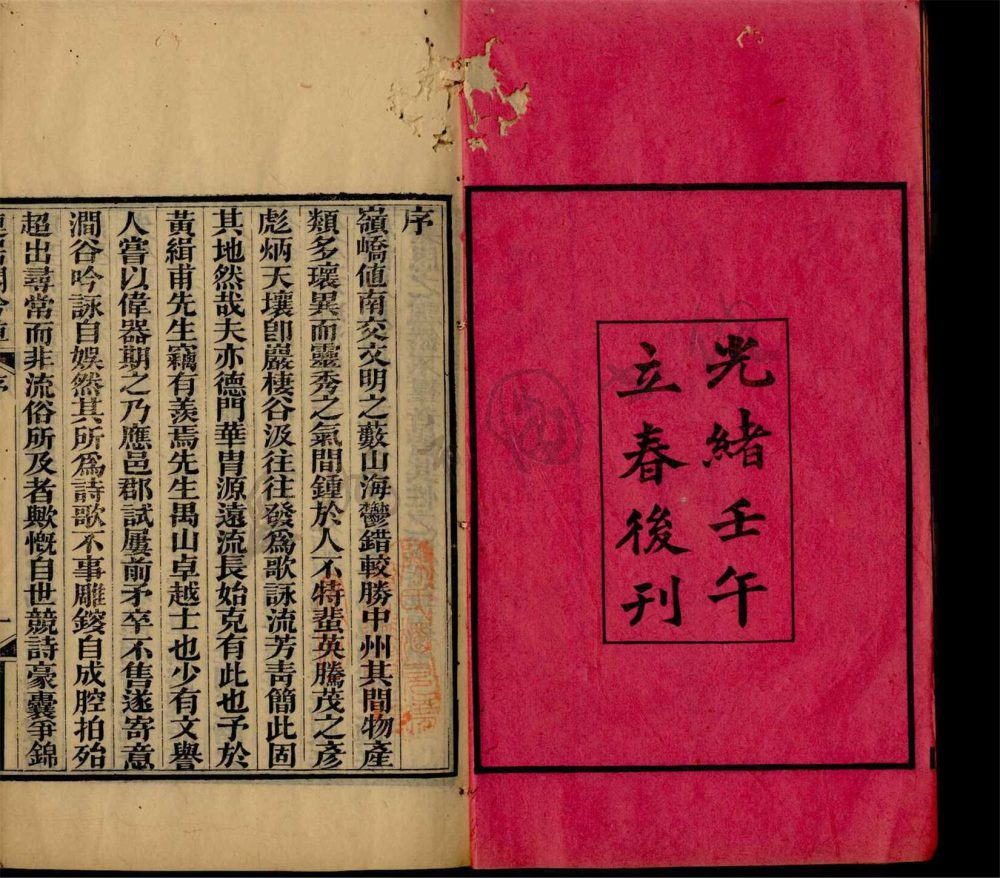 光緒壬午
立春後刊
序
嶺嶠值南交交明之藪山海鬱錯較勝中州其間物產
類多瓌異而靈秀之氣間鍾於人不特蜚英騰茂之彥
彪炳天壤卽巖棲谷汲往往發爲歌詠流芳靑簡此固
其地然哉夫亦德門華胄源遠流長始克有此也予於
黃緝甫先生竊有羨焉先生禺山卓越士也少有文譽
人嘗以偉器期之乃應邑郡試屢前矛卒不售遂寄意
澗谷吟詠自娛然其所爲詩歌不事雕鎪自成腔拍殆
超出尋常而非流俗所及者歟慨自世競詩豪囊爭錦
序
一